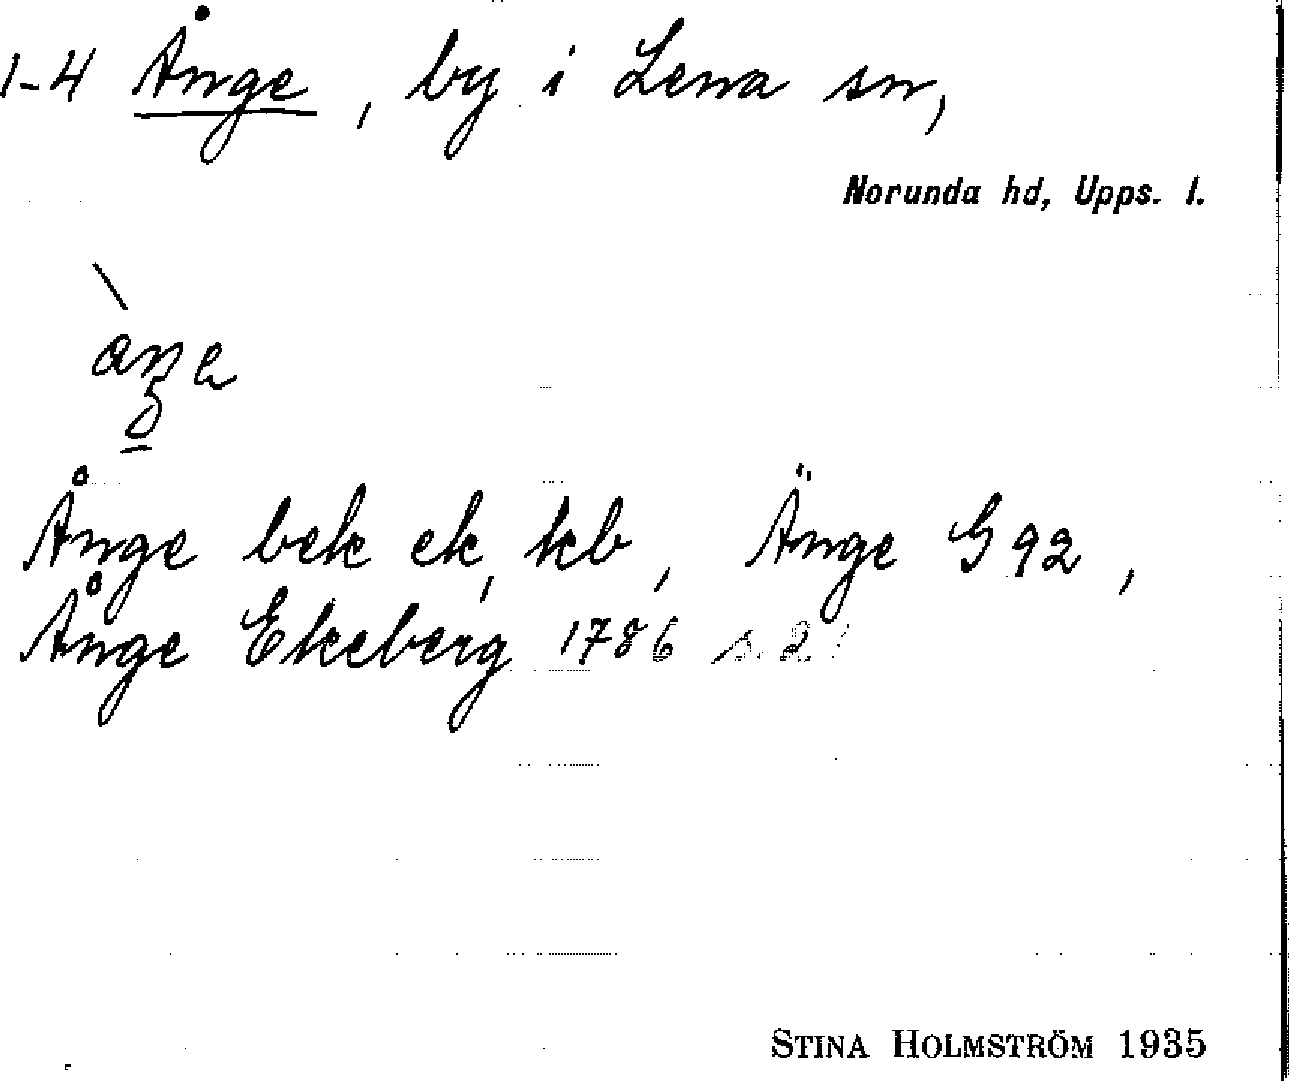 1-4 Ånge, by i Lena sn,
Norunda hd, Upps. l.
Ånge bek ek, kb, Änge G 92,
Ånge Ekeberg 1786 s. 2
STINA HOLMSTRÖM 1935